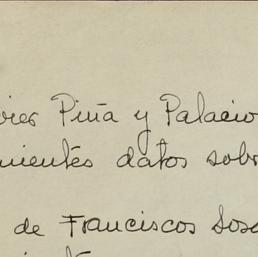 vier Piña y Palacio
uientes datos sobr
de Franciscos Sosa